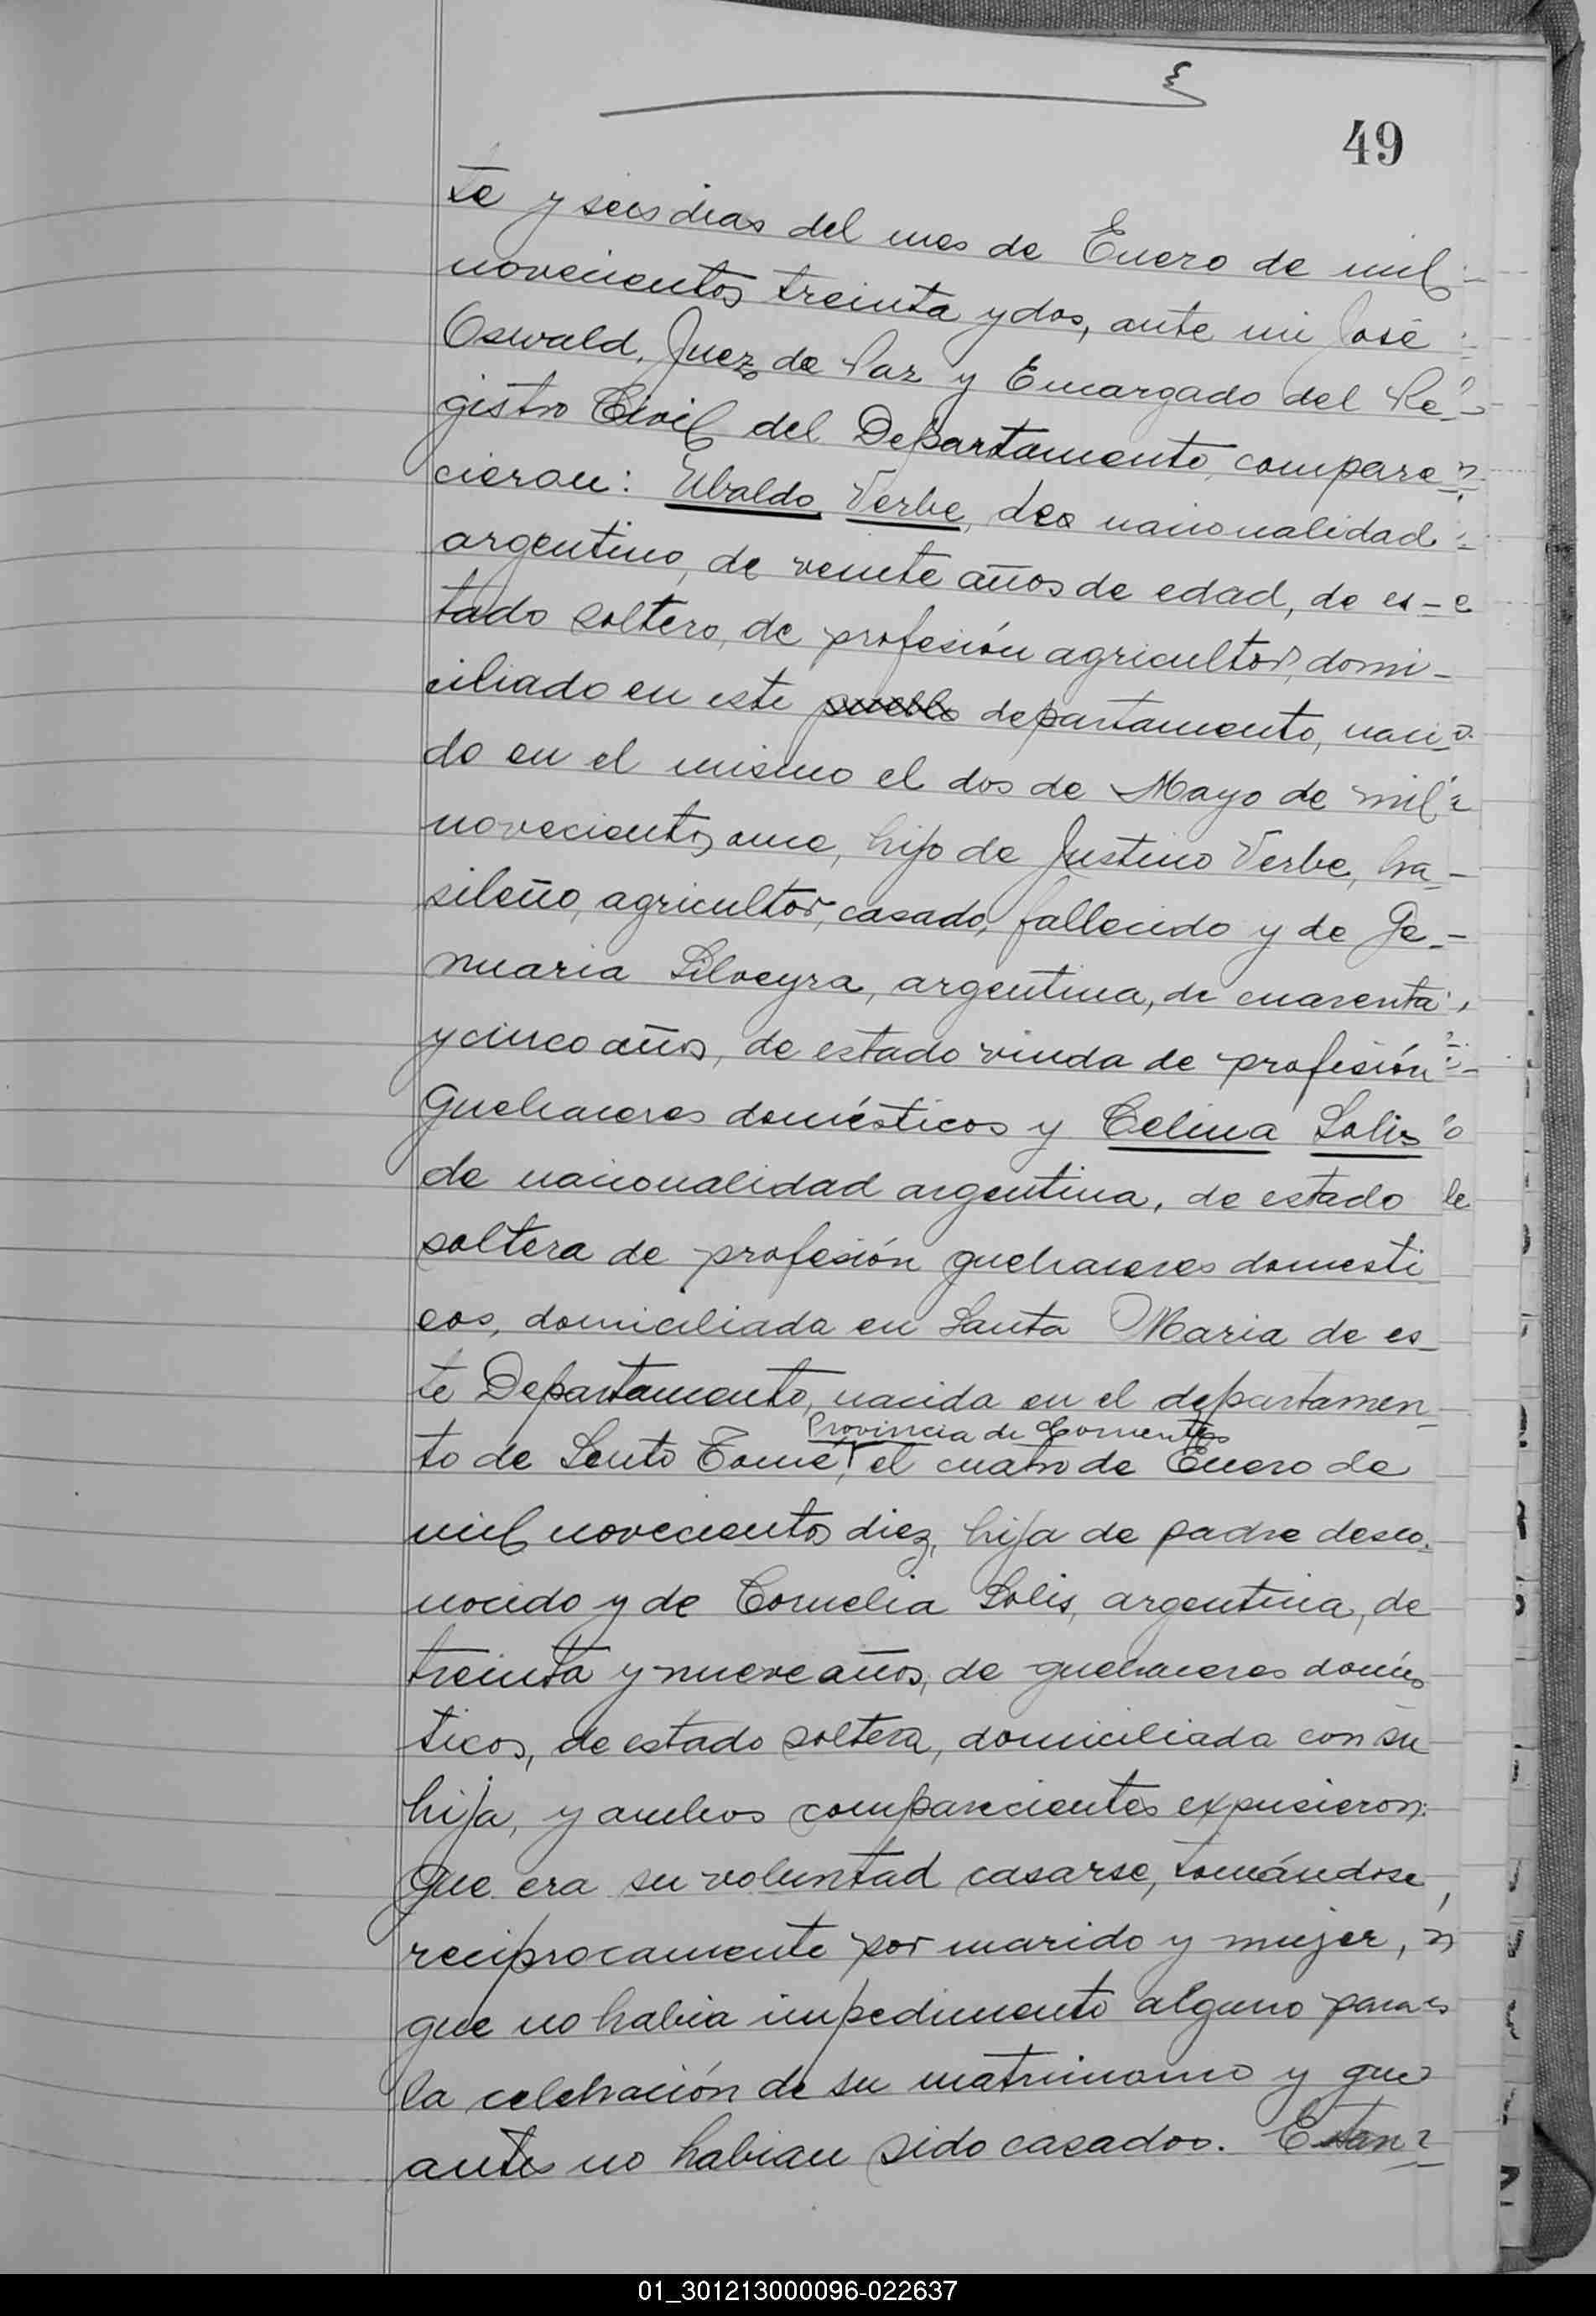 49
te y seis dias del mes de Enero de mil
novecientos treinta y dos, ante mi José
Oswald, Juez de Paz y Encargado del Re-
gistro Civil del Departamento, compare
cieron: Ubaldo Verbe, de nacionalidad
argentino, de veinte años de edad, de es-
tado soltero, de profesión agricultor, domi-
ciliado en este pueblo departamento, naci
do en el mismo el dos de Mayo de mil
novecientos once, hijo de Justino Verbe, bra-
sileño, agricultor, casado, fallecido y de Ge-
nuaria Silveyra, argentina, de cuarenta
y cinco años, de estado viuda de profesión
quehaceres domésticos y Celina Solis
de nacionalidad argentina, de estado
soltera de profesión quehaceres domesti
cos, domiciliada en Santa Maria de es-
te Departamento, nacida en el departamen-
Provincia de Corrientes
to de Santo Tomé, el cuatro de Enero de
mil novecientos diez, hija de padre desco-
nocido y de Cornelia Solis, argentina, de
treinta y nueve años, de quehaceres domés
ticos, de estado soltera, domiciliada con su
hija, y ambos comparecientes expusieron:
Que era su voluntad casarse, tomándose
reciprocamente por marido y mujer,
que no habia impedimento alguno para
la celebración de su matrimonio y que
antes no habian sido casados. Estan
01_301213000096-022637